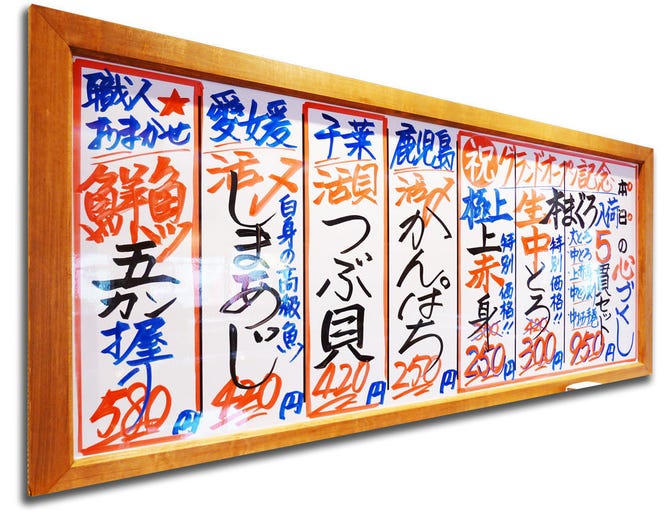 本日の心づくし
祝グランドオープン記念
本まぐろ入荷
5貫セット
950円
生中とろ
特別価格!!
420
300円
極上
上赤身
特別価格!!
300
250円
鹿児島
活〆
かんぱち
250円
千葉
活貝
つぶ貝
420円
愛媛
活〆
しまあじ
白身の高級魚
420円
職人★
おまかせ
鮮魚
五カン
握り
580円